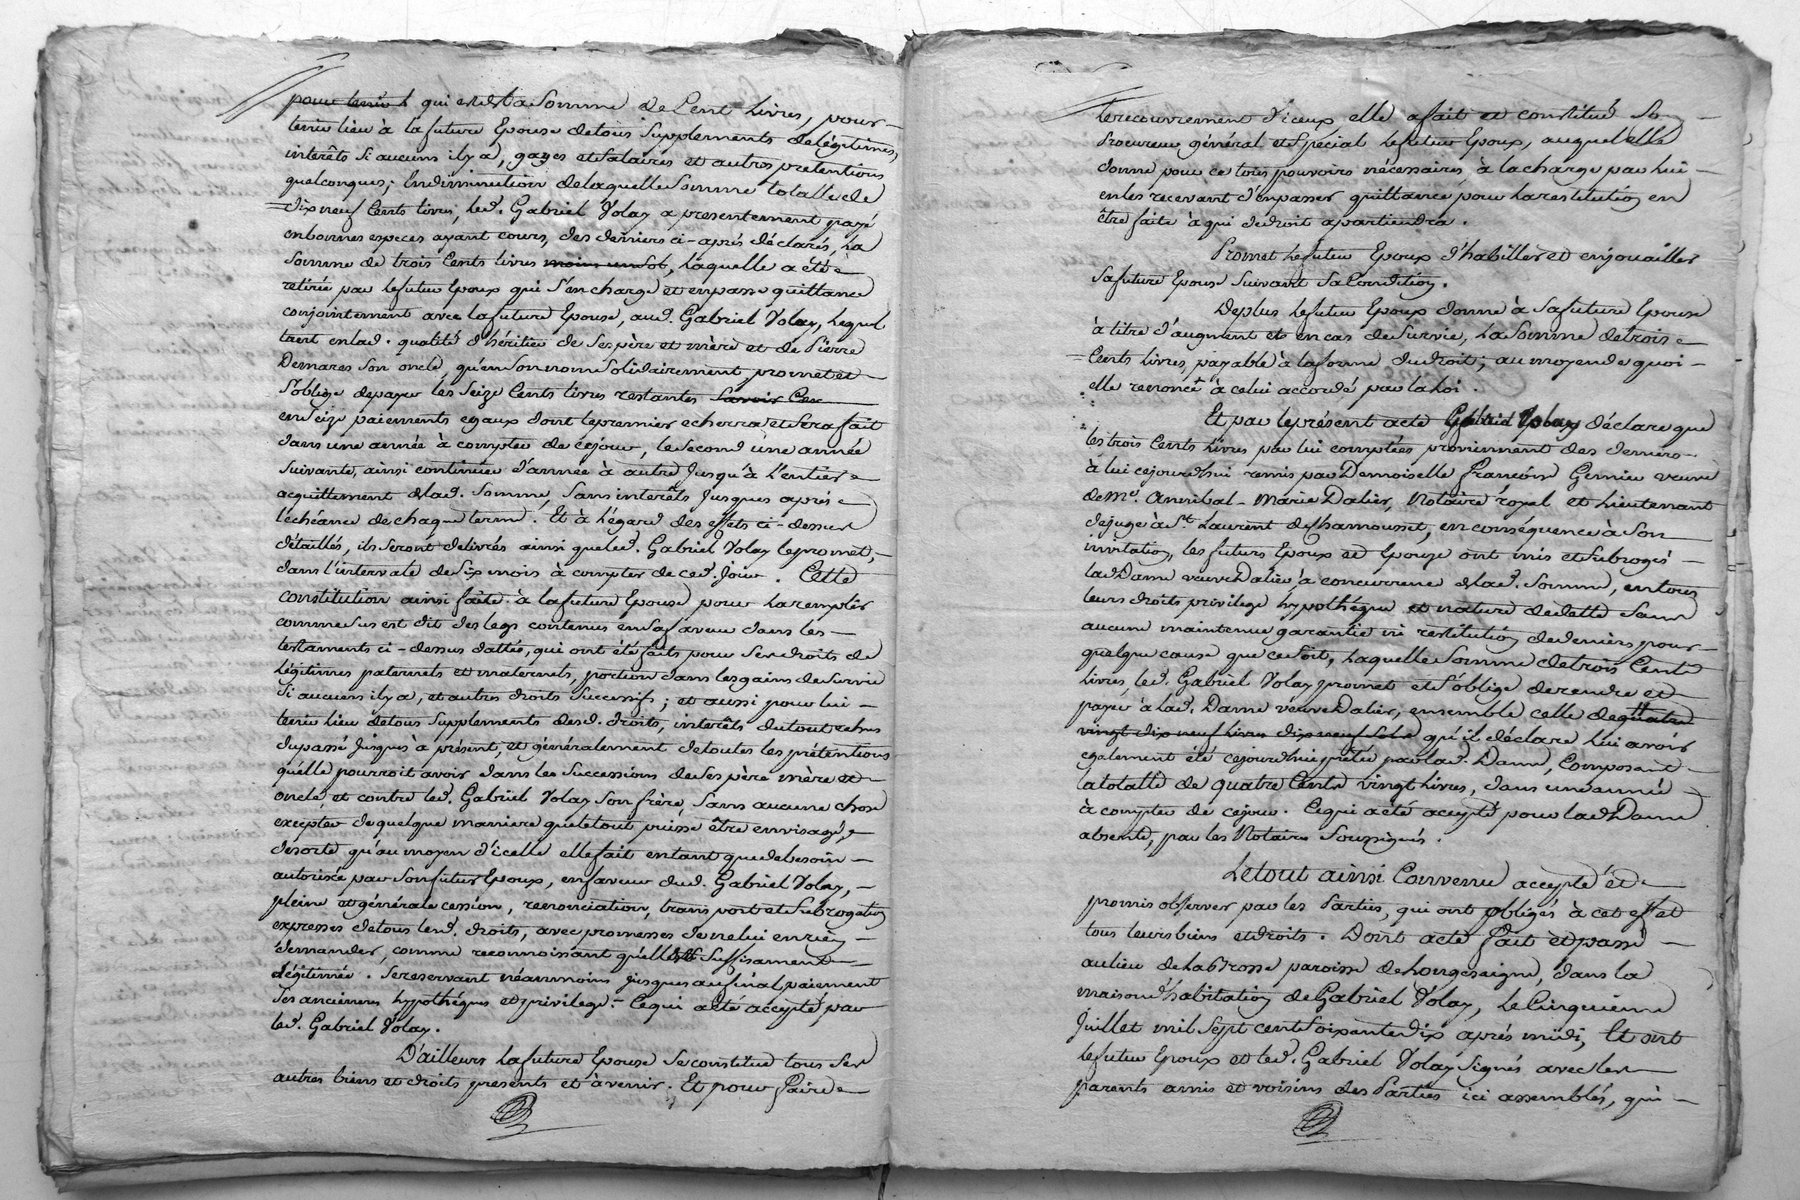 pour tenir qui est la Somme de Cent Livres, pour
tenir lieu à la future Epouse de tous Supplements de légitimes,
interêts Si aucuns il y a, gages et Salaires et autres pretentions
quelconques; En diminution de laquelle Somme totalle de
dix neuf Cents livres, led. Gabriel Volay a presentement payé
en bonnes especes ayant cours, des deniers ci-aprés déclarés, La
Somme de trois Cents livres moins un Sol, Laquelle a été
retirée par le futur Epoux qui S'en charge et en passe quittance
conjointement avec la future Epouse, aud. Gabriel Volay, Lequel
tant en lad. qualité d'héritier de Ses père et mère et de Pierre
Demares Son oncle, qu'en Son nom Solidairement promet et
S'oblige de payer les Seize Cents livres restantes Savoir Cen
en Seize paiements egaux dont le premier echerra et Sera fait
dans une année à compter de ce jour, le Second une année
Suivante, ainsi continuer d'année à autre Jusqu'à L'entier
acquittement de lad. Somme, Sans interêts Jusques aprés
L'echéance de chaque terme. Et à L'égard des effets ci-dessus
détaillés, ils Seront délivrés ainsi que led. Gabriel Volay le promet,
dans l'intervale de Six mois à compter de ced. Jour. Cette
constitution ainsi faite à la future Epouse pour La remplir
comme Sus est dit des legs contenus en Sa faveur dans les
testaments ci-dessus dattés, qui ont été faits pour Ses droits de
Légitimes paternels et maternels, portion dans les gains de Survie
Si aucuns il y a, et autres droits Successifs; et aussi pour lui
tenir lieu de tous Supplements desd. droits, interêts du tout echus
du passé Jusques à présent, et généralement de toutes les prétentions
qu'elle pourroit avoir dans les Successions de Ses père mère et
oncle et contre led. Gabriel Volay Son frère, Sans aucune chose
excepter de quelque maniere que le tout puisse être envisagé,
de sorte qu'au moyen d'icelle elle fait en tant que de besoin
autorisée par Son futur Epoux, en faveur dud. Gabriel Volay,
pleine et générale cession, renonciation, transport et Subrogation
expresses de tous lesd. droits, avec promesses de ne lui en rien
demander, comme reconnoissant qu'elle est Suffisament
Légitimée. Se reservant néanmoins Jusques au final paiement
Ses anciennes hypothèques et privilege. Ce qui a été accepté par
led. Gabriel Volay.
D'ailleurs La future Epouse Se constitue tous Ses
autres biens et droits presents et à venir. Et pour Faire
le recouvrement d'iceux elle a fait et constitué Son
Procureur général et Special Le futur Epoux, auquel elle
donne pour ce tous pouvoirs nécessaires, à la charge par Lui
en les recevant d'en passer quittance, pour La restitution en
être faite à qui de droit apartiendra.
Promet Le futur Epoux d'habiller et enjouailler
Sa future Epouse Suivant Sa Condition.
De plus Le futur Epoux donne à Sa future Epouse
à titre d'augment et en cas de Survie, La Somme de trois
Cents livres, payable à la forme du droit, au moyen de quoi
elle renonce à celui accordé par la Loi.
Et par le présent acte Gabriel Volay déclare que
les trois Cents Livres par lui comptées proviennent des deniers
à lui cejourd'hui remis par Demoiselle Françoise Grenier veuve
de Me. Annibal-Marie Dalier, Notaire royal et Lieutenant
de juge à St. Laurent de Chamousset, en conséquence à Son
invitation, les futurs Epoux et Epouze ont mis et Subrogé
lad. Dame veuve Dalier à concurrence de lad. Somme, en tous
leurs droits privilege hypothéque et nature de dette Sans
aucune maintenue garantie ni restitution de deniers pour
quelque cause que ce Soit, Laquelle Somme de trois Cents
Livres, led. Gabriel Volay promet et S'oblige de rendre et
payer à lad. Dame veuve Dalier, ensemble celle de quatre
vingt dix neuf livres dix neuf Sols qu'il déclare Lui avoir
egalement été cejourd'hui prêtée par lad. Dame, Composant
la totalle de quatre Cents vingt Livres, dans une année
à compter de cejour. Ce qui a été accepté pour lad. Dame
absente, par les Notaires Soussignés.
Le tout ainsi Convenu accepté et
promis observer par les Parties, qui ont obligés à cet effet
tous leurs biens et droits. Dont acte fait et passé
au lieu de La brosse paroisse de Longessaigne, dans la
maison d'habitation de Gabriel Volay, Le Cinquieme
Juillet mil Sept cent Soixante dix aprés midi, Et ont
Le futur Epoux et led. Gabriel Volay Signés avec les
parents amis et voisins des Parties ici assemblés, qui